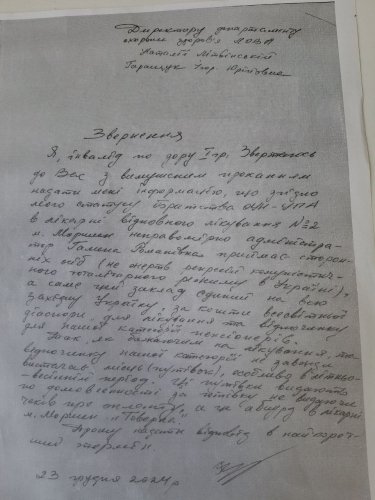 Директору департаменту
охорони здоров'я ЛОВА
Наталії Літвінській
Ігор Юріївна
Звернення
Я, інвалід по зору І гр. Звертаюсь
до Вас з вимушеним проханням
надати мені інформацію, що згідно
мого статусу Братства ОУН-УПА
в лікарні відновного лікування №2
м. Моршин неправомірно адміністра-
тор Галина Романівна приймає сторон-
ніх осіб (не жертв репресій комуністич-
ного тоталітарного режиму в Україні),
а саме цей заклад єдиний на всю
Західну Україну, за кошти всесвітньої
діаспори, для лікування та відпочинку
для нашої категорії пенсіонерів.
Так, як бажаючим на лікування та
відпочинку нашої категорії не завжди
вистачає місць (путівок), особливо в літньо-
осінній період. Ці путівки видають
по домовленості за готівку не видаючи
чеків про оплату, а це в лікарні
м. Моршин
Прошу надати відповідь в найкорот-
ший термін
23 грудня 2024р